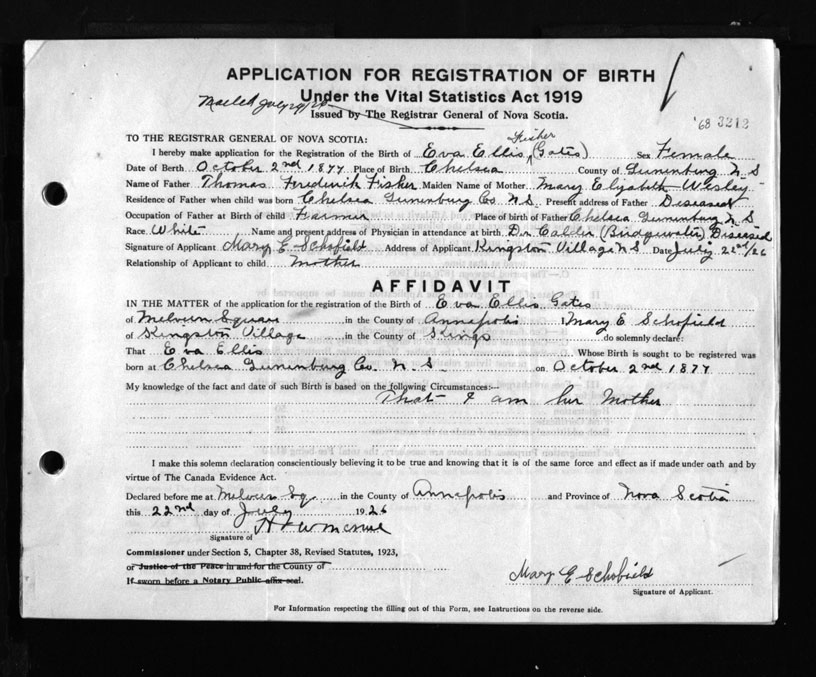 APPLICATION FOR REGISTRATION OF BIRTH
Under the Vital Statistics Act 1919
Mailed
Issued by The Registrar General of Nova Scotia.
'68 3212
TO THE REGISTRAR GENERAL OF NOVA SCOTIA:
Fisher
I hereby make application for the Registration of the Birth of Eva Ellis (Gates) Sex Female
Date of Birth October 2nd 1877 Place of Birth Chelsea County of Lunenburg N S
Name of Father Thomas Frederick Fisher Maiden Name of Mother Mary Elizabeth Wesley
Residence of Father when child was born Chelsea Lunenburg Co. N.S. Present address of Father Diseased
Occupation of Father at Birth of child Farmer Place of birth of Father Chelsea Lunenburg N S
Race White Name and present address of Physician in attendance at birth Dr Calder (Bridgewater) Diseased
Signature of Applicant Mary E Schofield Address of Applicant Kingston Village N S Date July 22nd/26
Relationship of Applicant to child Mother
AFFIDAVIT
IN THE MATTER of the application for the registration of the Birth of Eva Ellis Gates
of Melvern Square in the County of Annapolis I Mary E Schofield
of Kingston Village in the County of Kings do solemnly declare:
That Eva Ellis Whose Birth is sought to be registered was
born at Chelsea Lunenburg Co. N. S. on October 2nd 1877
My knowledge of the fact and date of such Birth is based on the following Circumstances:—
That I am her Mother
I make this solemn declaration conscientiously believing it to be true and knowing that it is of the same force and effect as if made under oath and by
virtue of The Canada Evidence Act.
Declared before me at Melvern Sq. in the County of Annapolis and Province of Nova Scotia
this 22nd day of July 1926
Signature of
Commissioner under Section 5, Chapter 38, Revised Statutes, 1923,
or Justice of the Peace in and for the County of
If sworn before a Notary Public affix seal.
Mary E Schofield
Signature of Applicant.
For Information respecting the filling out of this Form, see Instructions on the reverse side.